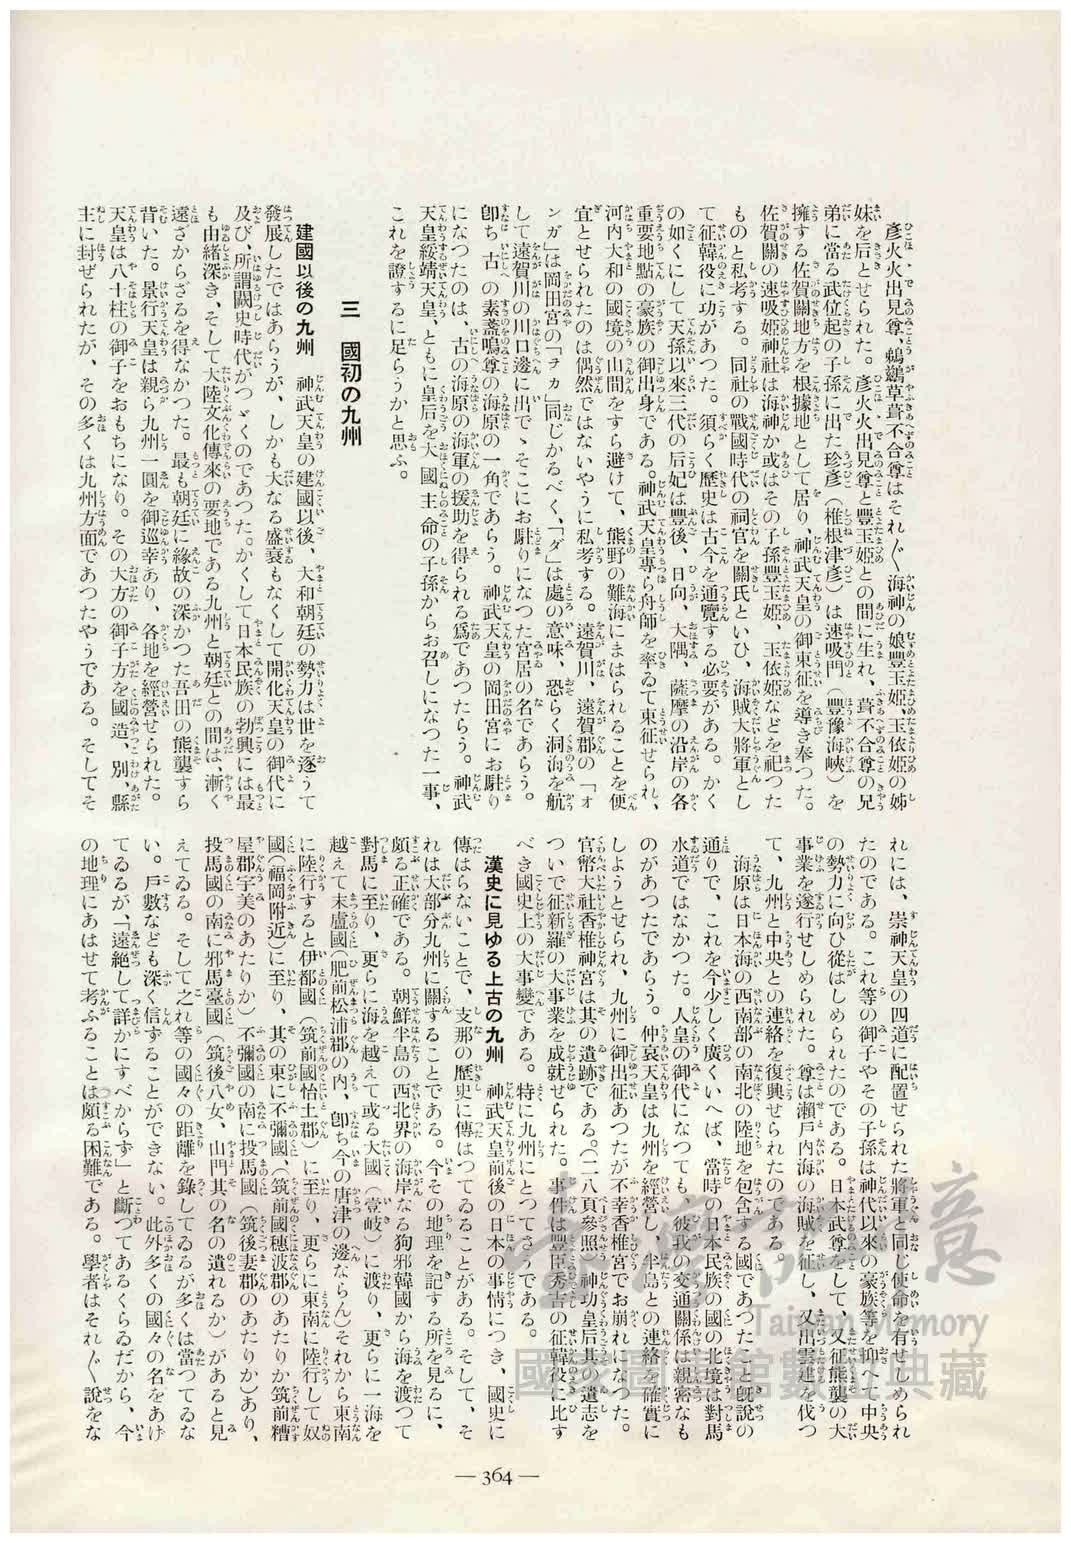 彥火火出見尊、鵜鷀草葺不合尊はそれ〴〵海神の娘豐玉姬、玉依姬の姊
妹を后とせられた。彥火火出見尊と豐玉姬との間に生れ、葺不合尊の兄
弟に當る武位起の子孫に出た珍彥（椎根津彥）は速吸門（豐豫海峽）を
擁する佐賀關地方を根據地として居り、神武天皇の御東征を導き奉つた。
佐賀關の速吸姬神社は海神か或はその子孫豐玉姬、玉依姬などを祀つた
ものと私考する。同社の戰國時代の祠官を關氏といひ、海賊大將軍とし
て征韓役に功があつた。須らく歷史は古今を通覽する必要がある。かく
の如くにして天孫以來三代の后妃は豐後、日向、大隅、薩摩の沿岸の各
重要地點の豪族の御出身である。神武天皇專ら舟師を率ゐて東征せられ、
河內大和の國境の山間をすら避けて、熊野の難海にまはられることを便
宜とせられたのは偶然ではないやうに私考する。遠賀川、遠賀郡の「オ
ンガ」は岡田宮の「ヲカ」同じかるべく、「ダ」は處の意味、恐らく洞海を航
して遠賀川の川口邊に出で、そこにお駐りになつた宮居の名であらう。
卽ち古の素盞嗚尊の海原の一角であらう。神武天皇の岡田宮にお駐り
になつたのは、古の海原の海軍の援助を得られる爲であつたらう。神武
天皇綏靖天皇、ともに皇后を大國主命の子孫からお召しになつた一事、
これを證するに足らうかと思ふ。
三　國初の九州
建國以後の九州　神武天皇の建國以後、大和朝廷の勢力は世を逐うて
發展したではあらうが、しかも大なる盛衰もなくして開化天皇の御代に
及び、所謂闕史時代がつゞくのであつた。かくして日本民族の勃興には最
も由緒深き、そして大陸文化傳來の要地である九州と朝廷との間は、漸く
遠ざからざるを得なかつた。最も朝廷に緣故の深かつた吾田の熊襲すら
背いた。景行天皇は親ら九州一圓を御巡幸あり、各地を經營せられた。
天皇は八十柱の御子をおもちになり。その大方の御子方を國造、別、縣
主に封ぜられたが、その多くは九州方面であつたやうである。そしてそ
れには、崇神天皇の四道に配置せられた將軍と同じ使命を有せしめられ
たのである。これ等の御子やその子孫は神代以來の豪族等を抑へて中央
の勢力に向ひ從はしめられたのである。日本武尊をして、又征熊襲の大
事業を遂行せしめられた。尊は瀨戶內海の海賊を征し、又出雲建を伐つ
て、九州と中央との連絡を復興せられたのである。
海原は日本海の西南部の南北の陸地を包含する國であつたこと旣說の
通りで、これを今少しく廣くいへば、當時の日本民族の國の北境は對馬
水道ではなかつた。人皇の御代になつても、彼我の交通關係は親密なも
のがあつたであらう。仲哀天皇は九州を經營し、半島との連絡を確實に
しようとせられ、九州に御出征あつたが不幸香椎宮でお崩れになつた。
官幣大社香椎神宮は其の遺跡である。（二八頁參照）神功皇后其の遺志を
ついで征新羅の大事業を成就せられた。事件は豐臣秀吉の征韓役に比す
べき國史上の大事變である。特に九州にとつてさうである。
漢史に見ゆる上古の九州　神武天皇前後の日本の事情につき、國史に
傳はらないことで、支那の歷史に傳はつてゐることがある。そして、そ
れは大部分九州に關することである。今その地理を記する所を見るに、
頗る正確である。朝鮮半島の西北界の海岸なる狗邪韓國から海を渡つて
對馬に至り、更らに海を越えて或る大國（壹岐）に渡り、更らに一海を
越えて末盧國（肥前松浦郡の內、卽ち今の唐津の邊ならん）それから東南
に陸行すると伊都國（筑前國怡土郡）に至り、更らに東南に陸行して奴
國（福岡附近）に至り、其の東に不彌國、（筑前國穗波郡のあたりか筑前糟
屋郡宇美のあたりか）不彌國の南に投馬國（筑後妻郡のあたりか）あり、
投馬國の南に邪馬臺國（筑後八女、山門其の名の遺れるか）があると見
えてゐる。そして之れ等の國々の距離を錄してゐるが多くは當つてゐな
い。戶數なども深く信ずることができない。此外多くの國々の名をあげ
てゐるが、「遠絕して詳かにすべからず」と斷つてあるくらゐだから、今
の地理にあはせて考ふることは頗る困難である。學者はそれ〴〵說をな
— 364 —
臺灣記憶
Taiwan Memory
國家圖書館數位典藏